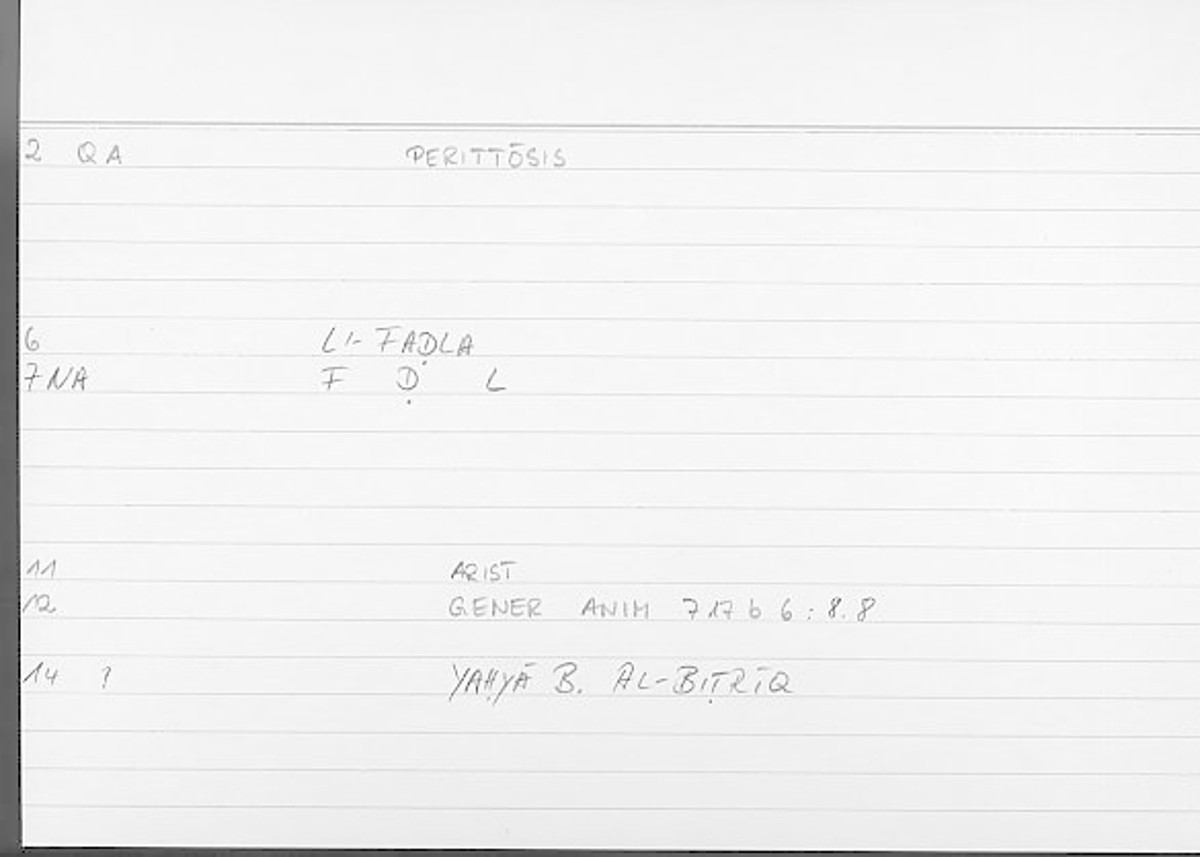 2 QA PERITTŌSIS
6 LI-FAḌLA
7 NA F Ḍ L
11 ARIST
12 GENER ANIM 717 b 6 : 8.8
14 ? YAḤYĀ B. AL-BIṬRĪQ